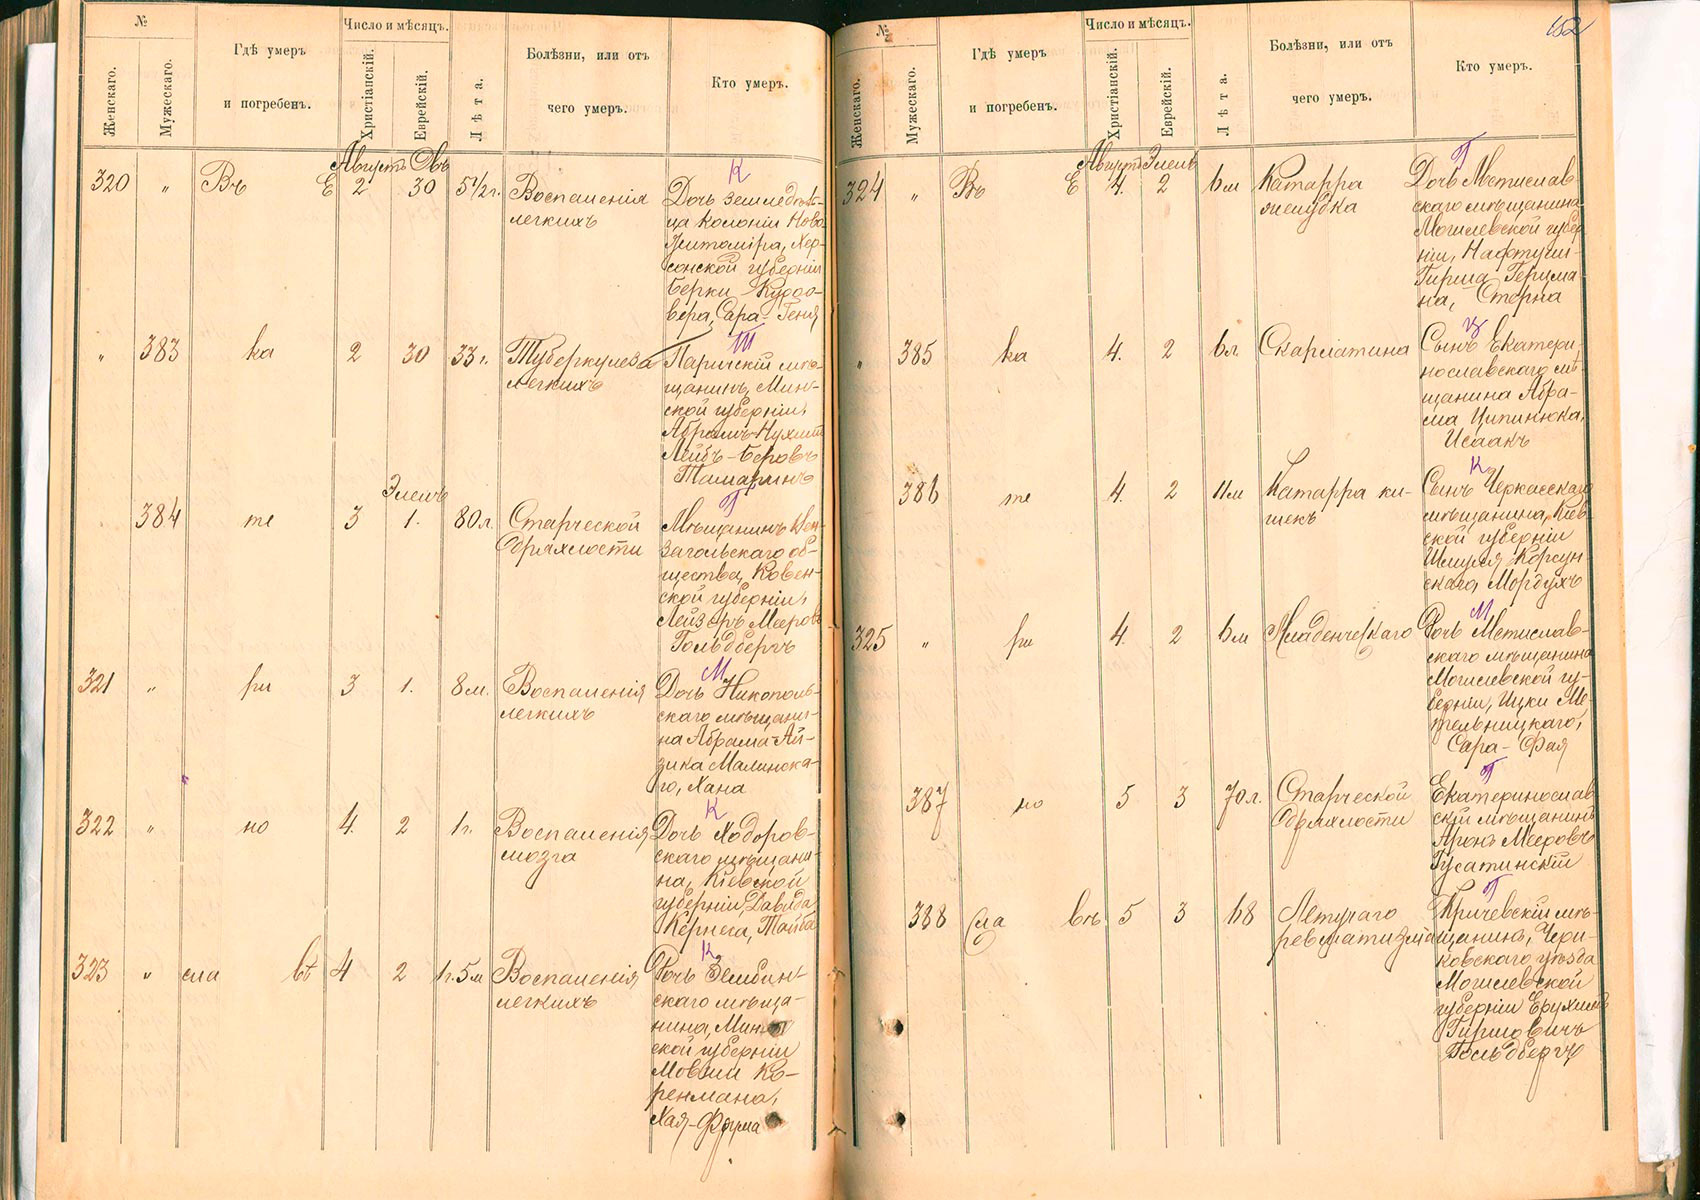 №
Женскаго.
Мужескаго.
Гдѣ умеръ
и погребенъ.
Число и мѣсяцъ.
Христіанскій.
Еврейскій.
Лѣта.
Болѣзни, или отъ
чего умеръ.
Кто умеръ.
Августъ Овъ
320 „ Въ Е 2 30 5½ г.
Воспаленія
легкихъ
К
Дочь земледѣль-
ца колоніи Ново-
Житоміра, Хер-
сонской губерніи
Берки
вера, Сара-Геня
„ 383 ка 2 30 33 г.
Туберкулеза
легкихъ
Т
Паричскій мѣ-
щанинъ, Мин-
ской губерніи,
Абрамъ-Нухим
Лейбъ-Беровъ
Тамаринъ
Элелъ
384 те 3 1. 80 л.
Старческой
дряхлости
Г
Мѣщанинъ
загольскаго об-
щества, Ковен-
ской губерніи,
Лейзеръ Мееровъ
Гольдбергъ
321 „ ри 3 1. 8 м.
Воспаленія
легкихъ
М
Дочь Никополь-
скаго мѣщани-
на Абрама-Ай-
зика Малинска-
го, Хана
322 „ но 4. 2 1 г.
Воспаленія
мозга
К
Дочь Ходоров-
скаго мѣщани-
на, Кіевской
губерніи, Давида
Кернега, Тайба
323 „ сла вѣ 4 2 1 г. 5 м
Воспаленія
легкихъ
К
Дочь Зембин-
скаго мѣща-
нина, Минс
ской губерніи
Мовши Ко-
ренмана,
Хая-Фрума
152
№
Женскаго.
Мужескаго.
Гдѣ умеръ
и погребенъ.
Число и мѣсяцъ.
Христіанскій.
Еврейскій.
Лѣта.
Болѣзни, или отъ
чего умеръ.
Кто умеръ.
Августъ Элелъ
324 „ Въ Е 4. 2 6 м
Катарра
желудка
Г
Дочь Мстислав-
скаго мѣщанина
Могилевской губер
ніи, Нафтули-
Гирша Герцма-
на, Стерна
„ 385 ка 4. 2 6 л.
Скарлатина
Ц
Сынъ Екатери-
нославскаго мѣ-
щанина Абра-
ма Ципинюка,
Исаакъ
386 те 4. 2 11 м
Катарра ки-
шекъ
К
Сынъ Черкасскаго
мѣщанина, Кіев-
ской губерніи
Шмуля Корсун
скаго, Мордухъ
325 „ ри 4. 2 6 м
Младенческаго
М
Дочь Мстислав-
скаго мѣщанина
Могилевской гу-
берніи, Ицки Ме-
тельницкаго,
Сара-Фая
387 но 5 3 70 л.
Старческой
дряхлости
Г
Екатеринослав
скій мѣщанинъ
Аронъ Мееровъ
Гусатинскій
388 сла вѣ 5 3 68
Летучаго
ревматизма
Г
Кричевскій мѣ-
щанинъ, Чери-
ковскаго уѣзда
Могилевской
губерніи Ерухимъ
Гиршовичъ
Гольдбергъ